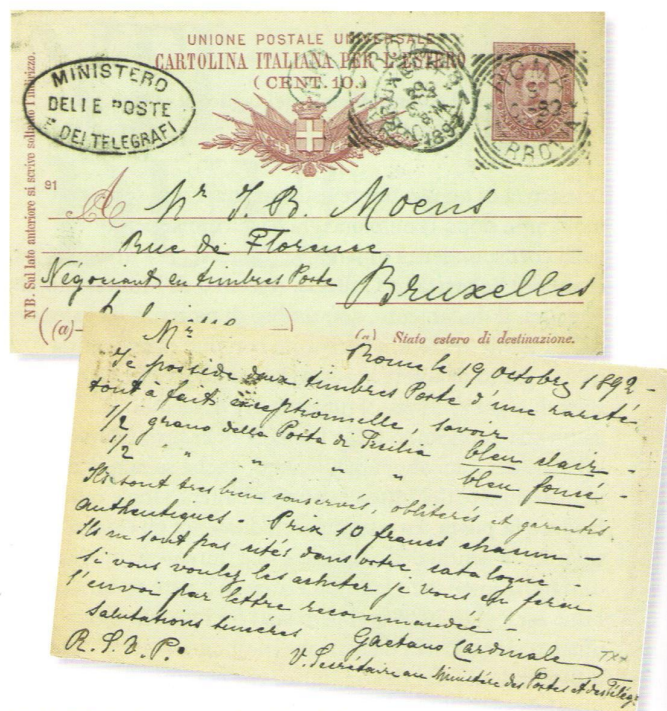 UNIONE POSTALE UNIVERSALE
CARTOLINA ITALIANA PER L'ESTERO
(CENT. 10.)
MINISTERO
DELLE POSTE
E DEI TELEGRAFI
ROMA
92
FERROVIA
1892
NB. Sul lato anteriore si scrive soltanto l'indirizzo.
91
A Mr J. B. Moens
Rue de Florence
Négociant en timbres Poste
Bruxelles
(a)
(a) Stato estero di destinazione.
Mr
Rome le 19 octobre 1892 -
Je possède deux timbres Poste d'une rareté
tout à fait exceptionnelle, savoir
1/2 grano della Posta di Sicilia bleu clair -
1/2 " " " " " bleu foncé -
Ils sont tres bien conservés, oblitérés et garantis
authentiques - Prix 10 francs chacun -
Ils ne sont pas cités dans votre catalogue -
Si vous voulez les acheter je vous en ferai
l'envoi par lettre recommandée -
Salutations sincères
Gaetano Cardinale
R. S. V. P.
V. Secrétaire au Ministère des Postes et des Télég.